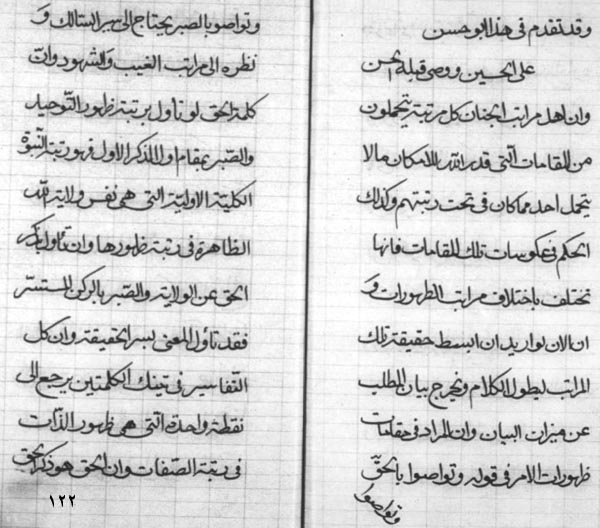 وقد تقدم فی هذا ابو حسن
علی الحسین ووصی قبله الحسن
وان اهل مراتب الجنان کل مرتبة یتحملون
من المقامات التی قدر الله للامکان ما لا
یتحمل احد مما کان فی تحت رتبتهم وکذلک
الحکم فی عکوسات تلک المقامات فانها
تختلف باختلاف مراتب الظهورات و
ان الان لو ارید ان ابسط حقیقة تلک
المراتب لیطول الکلام ویخرج بیان المطلب
عن میزان البیان وان المراد فی مقامات
ظهورات الامر فی قوله وتواصوا بالحق
وتواصوا
وتواصوا بالصبر یحتاج الی سیر السالک و
نظره الی مراتب الغیب والشهود وان
کلمة الحق لو تأول برتبة ظهور التوحید
والصبر بمقام الذکر الاول فهو رتبة النبوة
الکلیة الاولیة التی هی نفس ولایة الله
الظاهرة فی رتبة ظهورها وان تأول بذکر
الحق عن الولایة والصبر بالرکن المستسر
فقد تأول المعنی بسر الحقیقة وان کل
التفاسیر فی تینک الکلمتین یرجع الی
نقطة واحدة التی هی ظهور الذات
فی رتبة الصفات وان الحق هو ذکر الحق
١٢٢